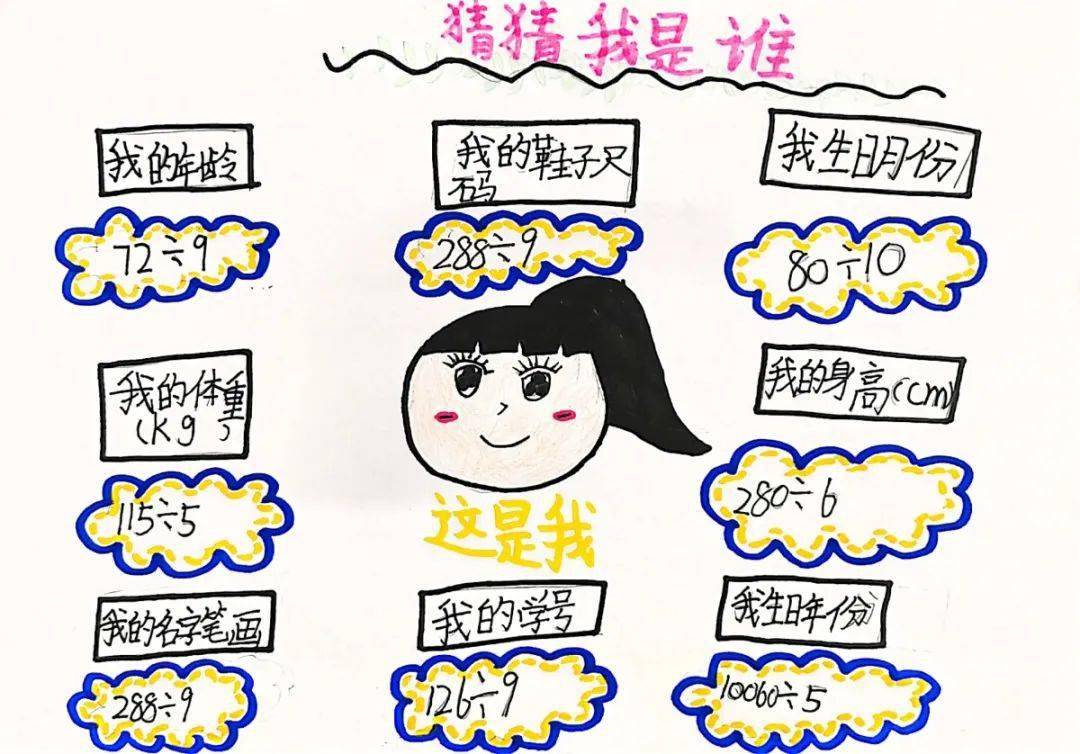 猜猜我是谁
我的年龄
72÷9
我的鞋子尺
码
288÷9
我生日月份
80÷10
我的体重
(kg)
115÷5
这是我
我的身高(cm)
280÷6
我的名字笔画
288÷9
我的学号
126÷9
我生日年份
10060÷5